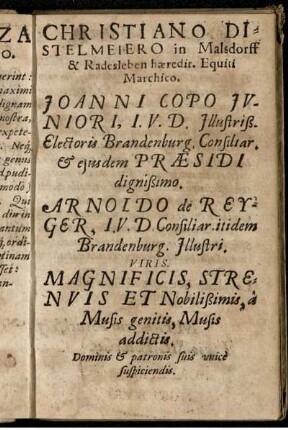 ZA
O.
erint:
naximi
dignam
nostra,
expete-
. Neq́
genus
d,pudi-
modo)
. Qui
diu in
antum
q́,ordi-
tinam
ssei:
an-
CHRISTIANO DI-
STELMEIERO in Malsdorff
& Radesleben hæredit. Equiti
Marchico.
JOANNI COPO JV-
NIORI, I.V.D. Illustriß.
Electoris Brandenburg. Consiliar.
& ejusdem PRÆSIDI
dignißimo.
ARNOLDO de REY-
GER, I.V.D. Consiliar. itidem
Brandenburg. Illustri.
VIRIS.
MAGNIFICIS, STRE-
NVIS ET Nobilißimis, à
Musis genitis, Musis
addictis.
Dominis & patronis suis unicè
suspiciendis.